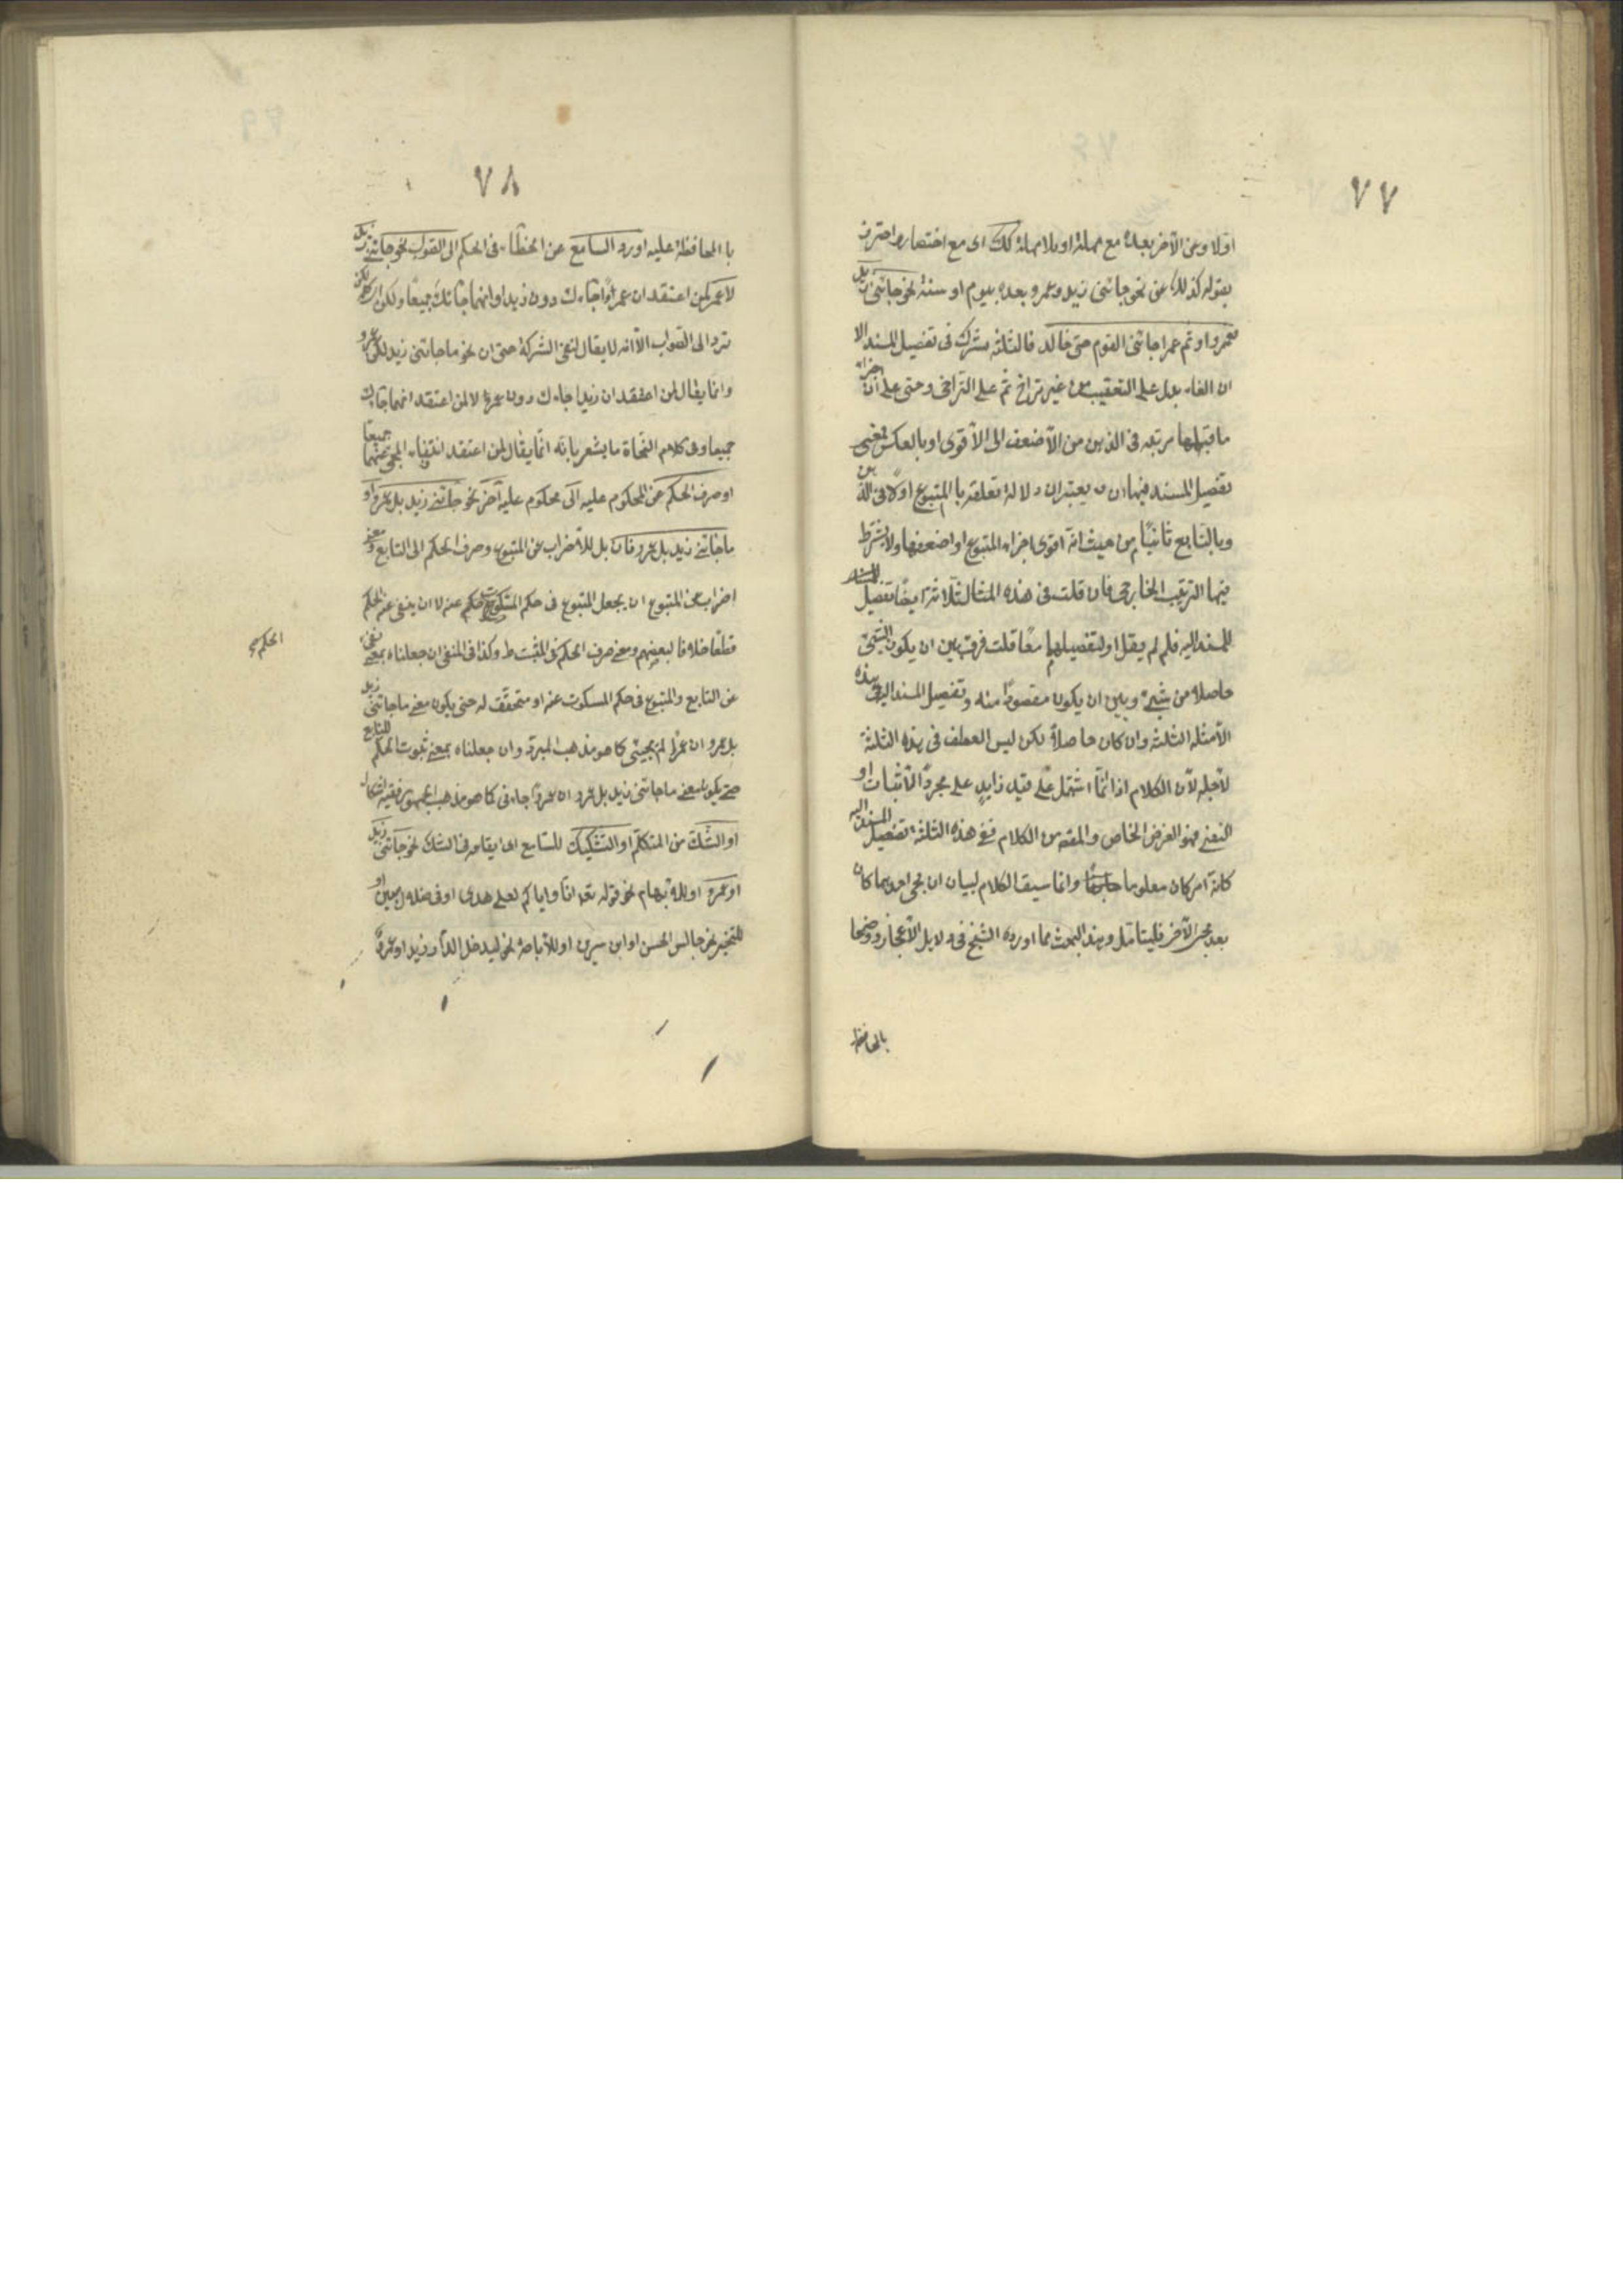 ٧٧
اولا وعن الآخر بعده مع مهلة او بلا مهلة كك اى مع اختصار واحترز
بقوله كذلك عن نحو جائنى زيد وعمرو بعده بيوم او سنة نحو جائنى زيد
فعمرو او ثم عمرا جائنى القوم حتى خالد فالثلثة تشترك فى تفصيل المسند الا
ان الفاء يدل على التعقيب من غير تراخ ثم على التراخى وحتى على ان اجزاء
ما قبلها مرتبه فى الذهن من الأضعف الى الأقوى او بالعكس فمعنى
تفصيل المسند فيها ان يعتبر ان دلالة تعلقه با المتبوع اولا فى الذهن
وبالتابع ثانيًا من حيث انه اقوى اجزاء المتبوع او اضعفها ولا يشترط
فيها الترتيب الخارجى فان قلت فى هذه المثال الثلاثة ايضًا تفصيل
للمسند اليه فلم لم يقل او لتفصيلهما معًا قلت فرق بين ان يكون الشئ
حاصلا من شيئ وبين ان يكون مقصودًا منه وتفصيل المسند اليه فى هذه
الأمثلة الثلثة وان كان حاصلاً لكن ليس العطف فى هذه الثلثة
لأجله لأن الكلام اذا انما اشتمل على قيد زايد على مجرد الأثبات او
النفى فهو الغرض الخاص والمقصد من الكلام ففى هذه الثلثة تفصيل المسند اليه
كانه امر كان معلوما وانما سيق الكلام لبيان ان مجئ احدهما كان
بعد مجئ الآخر فليتأمل وهذا البحث مما اورده الشيخ فى دلايل الأعجاز ووضحا
بالمحافظة
٧٨
با المحافظة عليه اورد السامع عن الخطاء فى الحكم الى الصواب نحو جائنى زيد
لا عمر لمن اعتقد ان عمرًا جاءك دون زيد او انهما جائك جميعًا ولكن
ترد الى الصواب الأ انه لا يقال لنفى الشركة حتى ان نحو ما جائنى زيد لكن عمرو
وانما يقال لمن اعتقد ان زيدا جاءك دون عمرو لا لمن اعتقد انهما جاءك
جميعا وفى كلام النحاة ما يشعر بانه انما يقال لمن اعتقد انتفاء المجئ عنهما جميعًا
او صرف الحكم عن المحكوم عليه الى محكوم عليه آخر نحو جائنى زيد بل عمرو او
ما جائنى زيد بل عمرو فان بل للأضراب عن المتبوع وصرف الحكم الى التابع ومعنى
اضراب عن المتبوع ان يجعل المتبوع فى حكم المسكوت عنه لا ان ينفى عنه الحكم
قطعًا خلافا لبعضهم ومعنى صرف الحكم فى المثبت ظ وكذا فى المنفى ان جعلناه بمعنى نفى
الحكم صح
عن التابع والمتبوع فى حكم المسكوت عنه او متحقق له حتى يكون معنى ما جائنى زيد
بل عمرو ان عمرًا لم يجيئ كما هو مذهب المبرد وان جعلناه بمعنى ثبوت الحكم للتابع
حتى يكون معنى ما جائنى زيد بل عمرو ان عمروًا جاءنى كما هو مذهب الجمهور ففيه اشكال
او الشك من المتكلم او التشكيك للسامع اى ايقاعه فى الشك نحو جائنى زيد
او عمرو او للأبهام نحو قوله تعه انا واياكم لعلى هدى او فى ضلال مبين او
للتخيير نحو جالس الحسن او ابن سيرين او للأباحة نحو ليدخل الدار زيد او عمرو